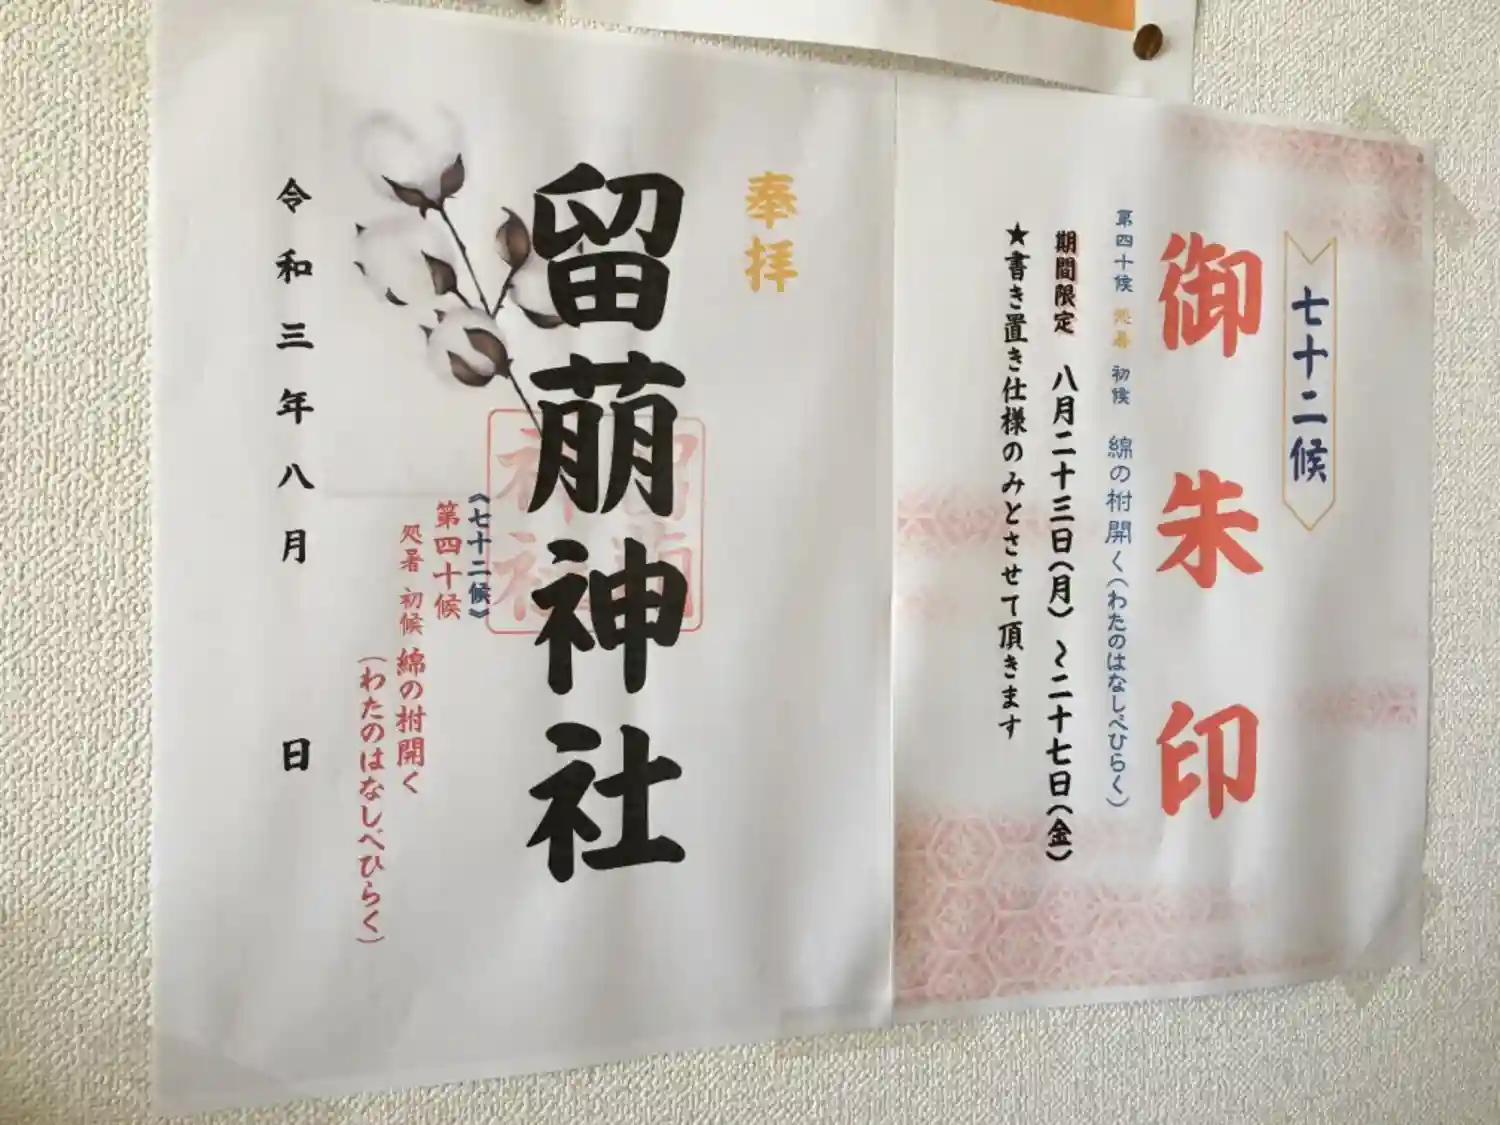 七十二候
御朱印
第四十候 処暑 初候 綿の柎開く(わたのはなしべひらく)
期間限定 八月二十三日(月)〜二十七日(金)
★書き置き仕様のみとさせて頂きます
奉拝
留萠神社
留萠神社
《七十二候》
第四十候
処暑 初候 綿の柎開く
(わたのはなしべひらく)
令和三年八月 日